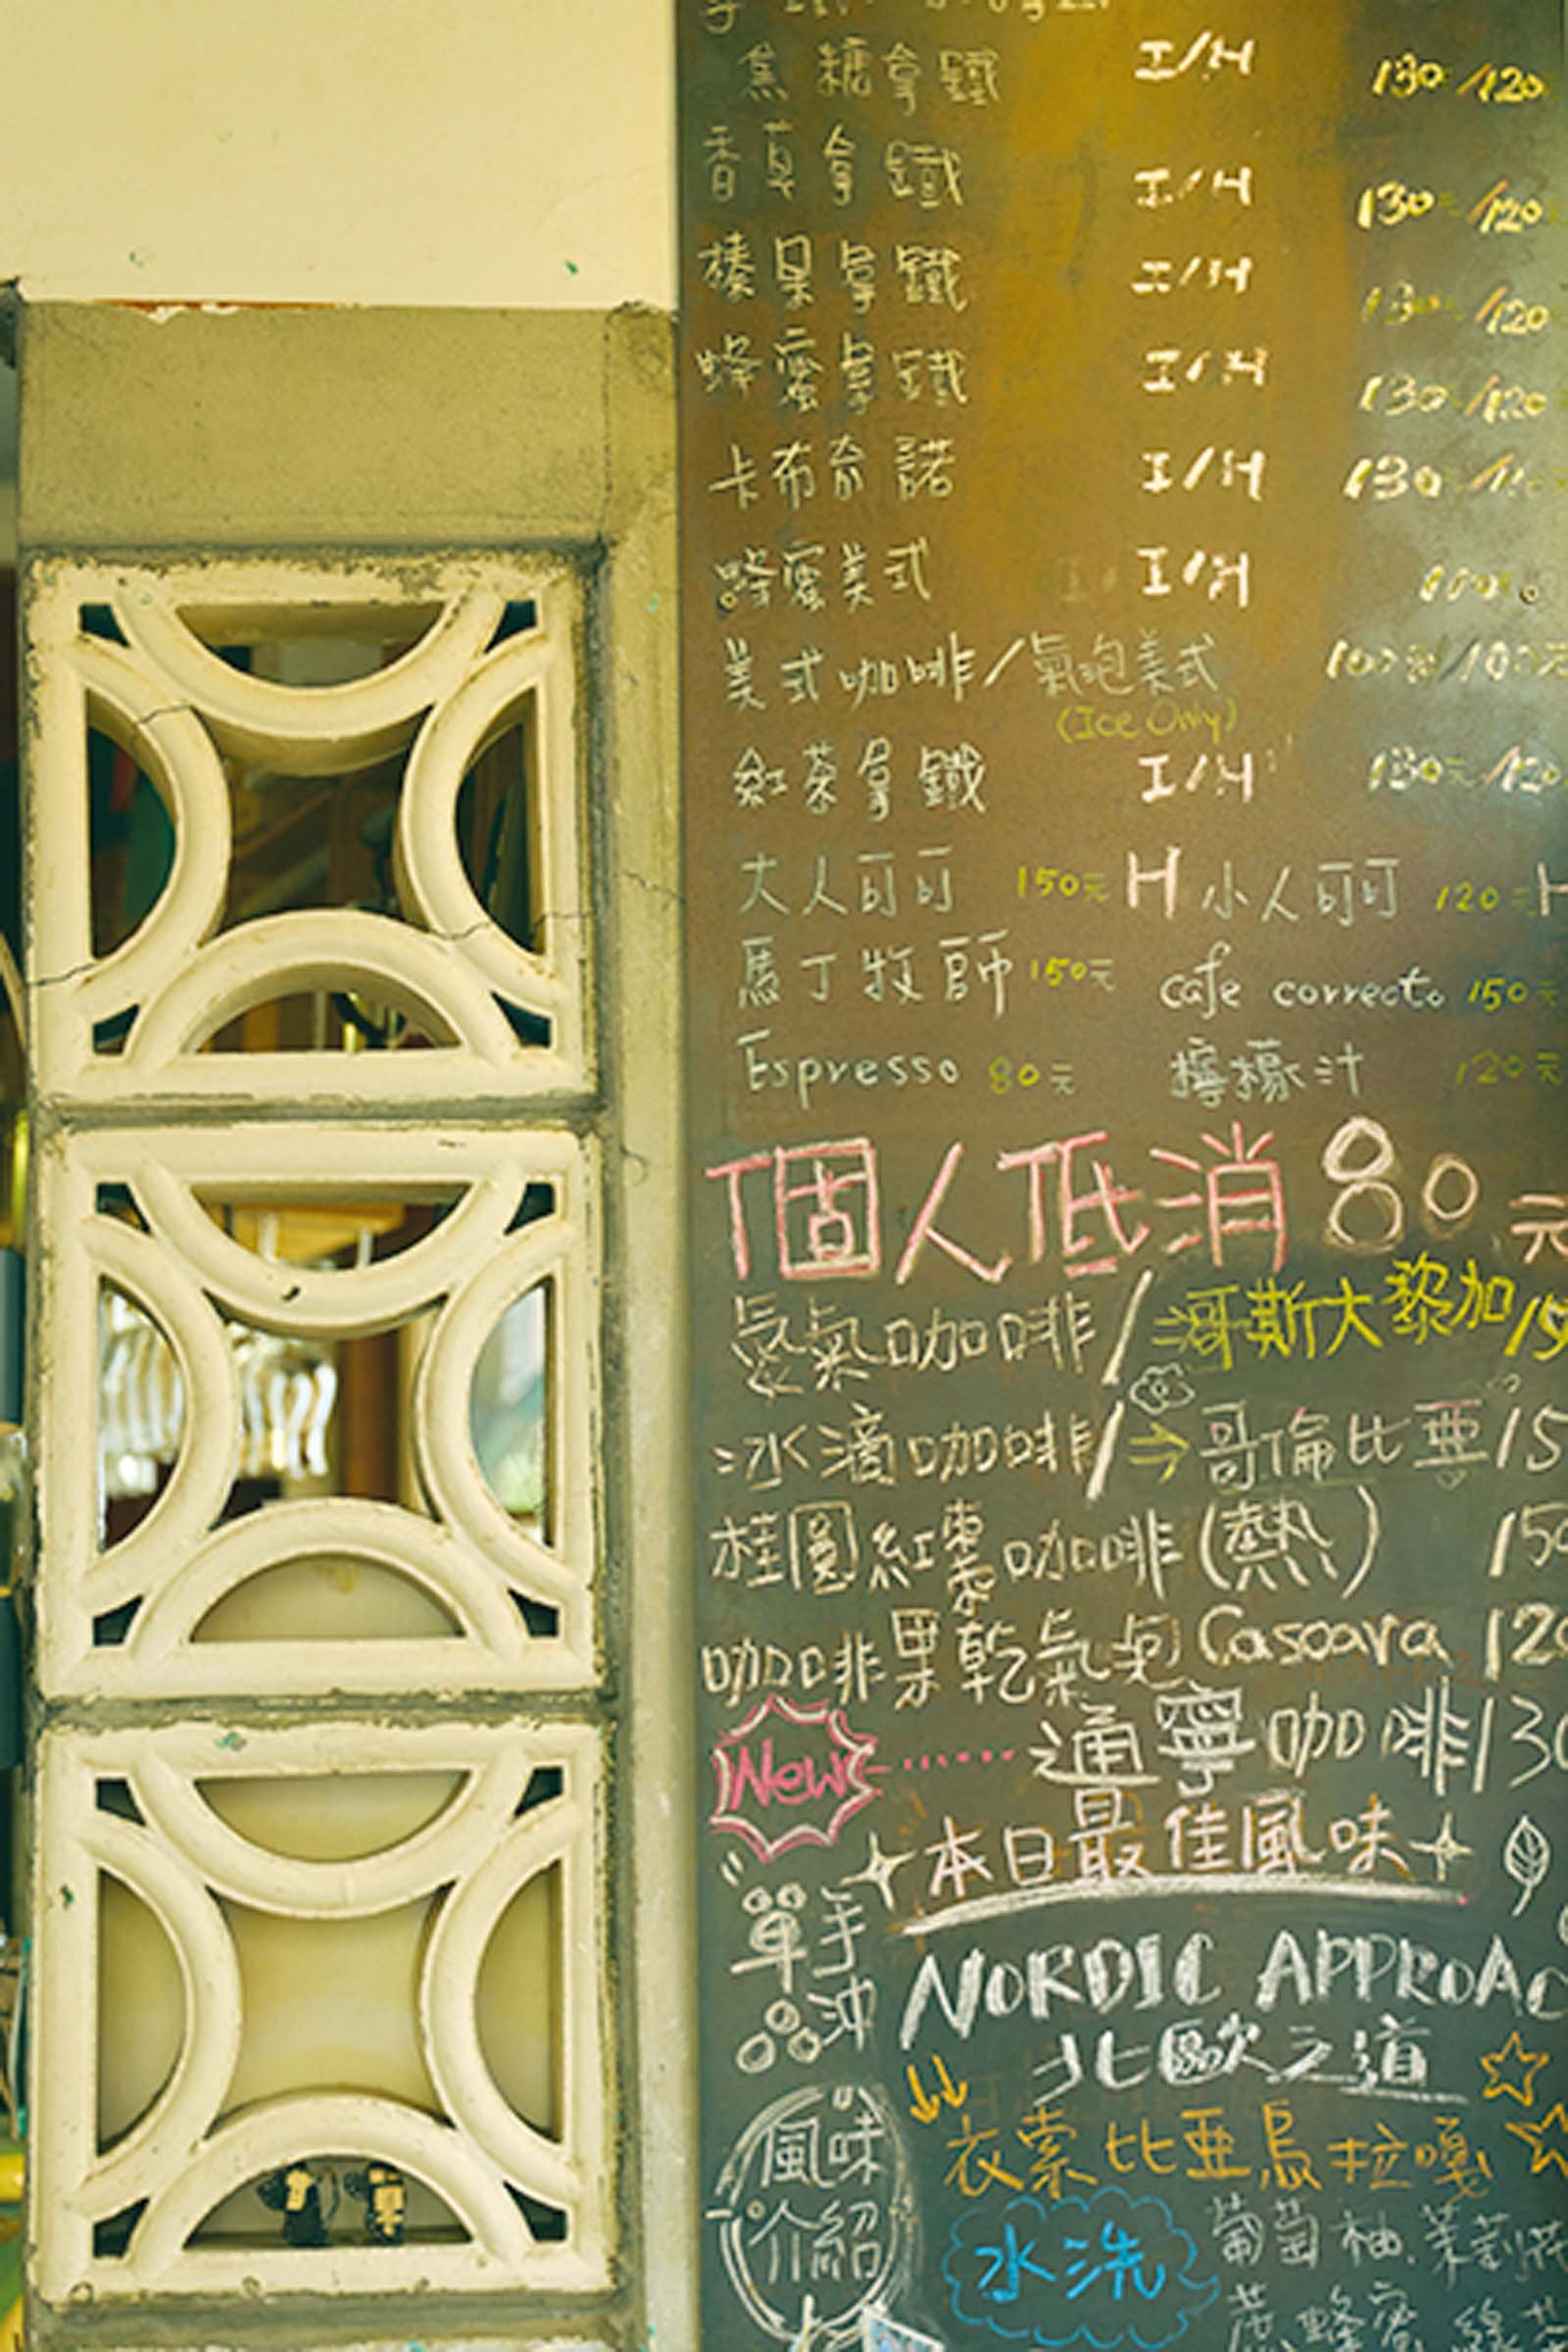 焦糖拿鐵 I/H 130/120
香草拿鐵 I/H 130/120
榛果拿鐵 I/H 130/120
蜂蜜拿鐵 I/H 130/120
卡布奈諾 I/H 130
蜂蜜美式 I/H
美式咖啡/氣泡美式 100元/100元
(Ice Only)
紅茶拿鐵 I/H 130元/120
大人可可 150元 H 小人可可 120元 H
馬丁牧師 150元 cafe correcto 150元
Espresso 80元 檸檬汁 120元
個人低消80元
氮氣咖啡/哥斯大黎加
冰滴咖啡/→哥倫比亞
桂圓紅棗咖啡(熱) 150
咖啡果乾氣泡Cascara 120
New 通寧咖啡 130
本日最佳風味
手沖
單品
NORDIC APPROAC
北歐之道
衣索比亞烏拉嘎
風味介紹
水洗
葡萄柚.茉莉花
蜂蜜